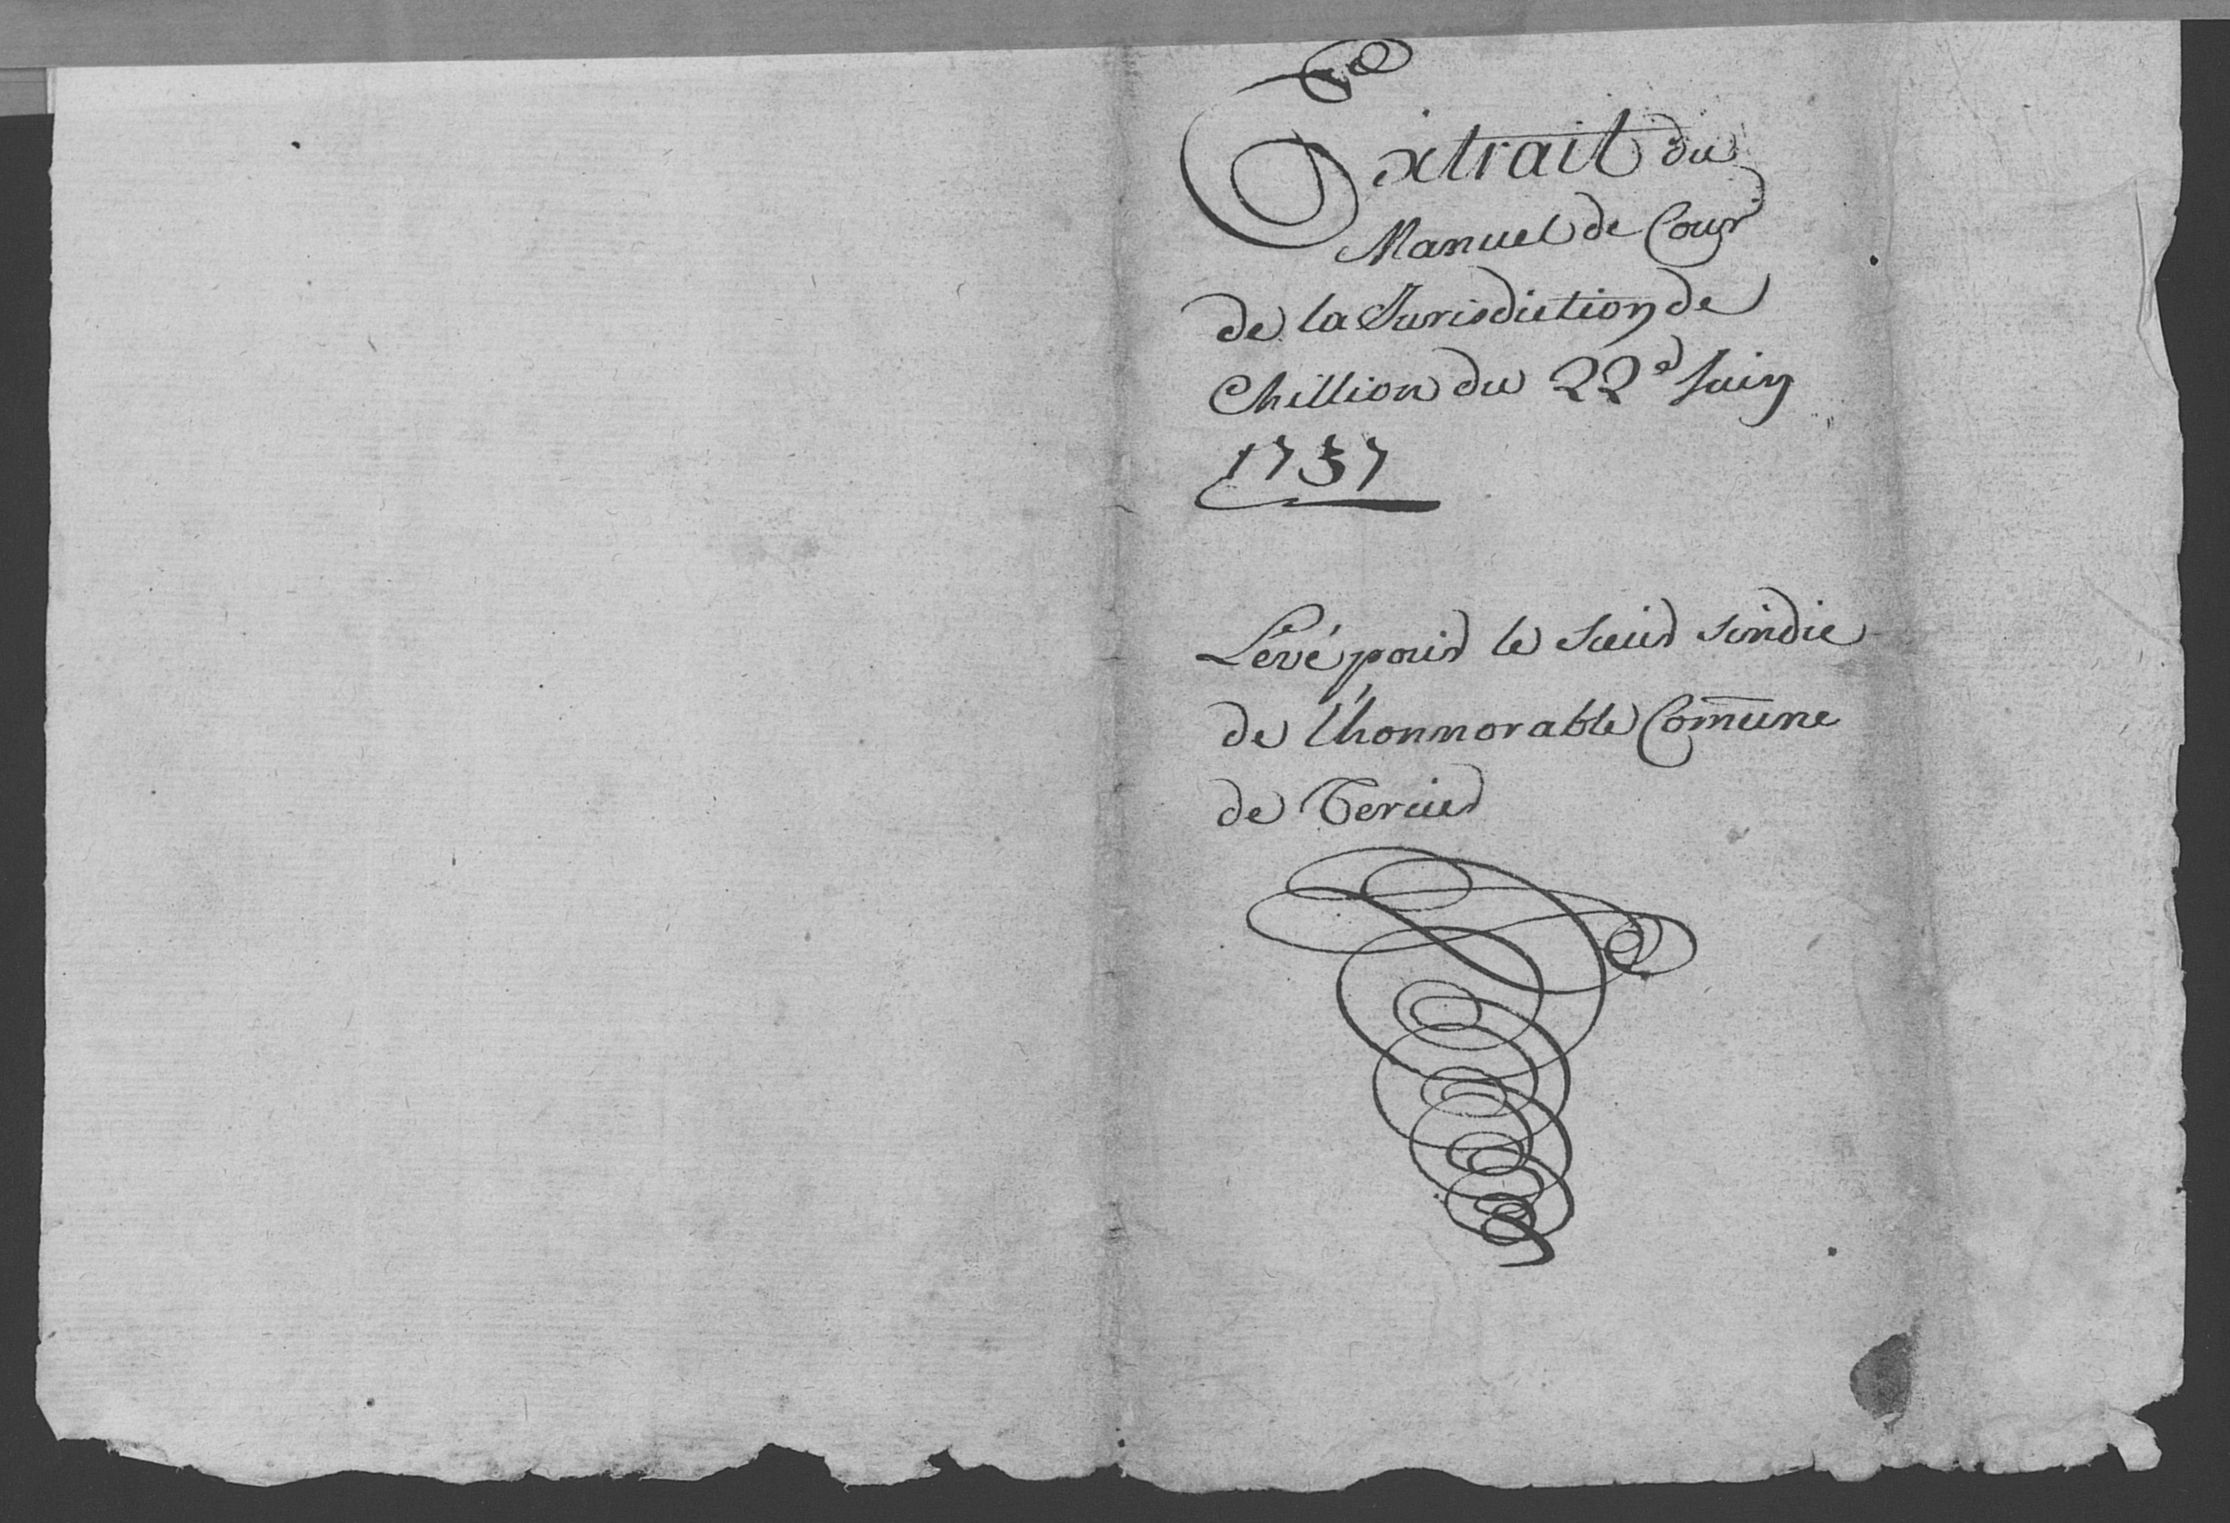 Extrait du
Manuel de Cour
de la Jurisdiction de
Chillion du 22e Juin
1737
Levé pour le Sieur Sindic
de l'honnorable Com̄une
de